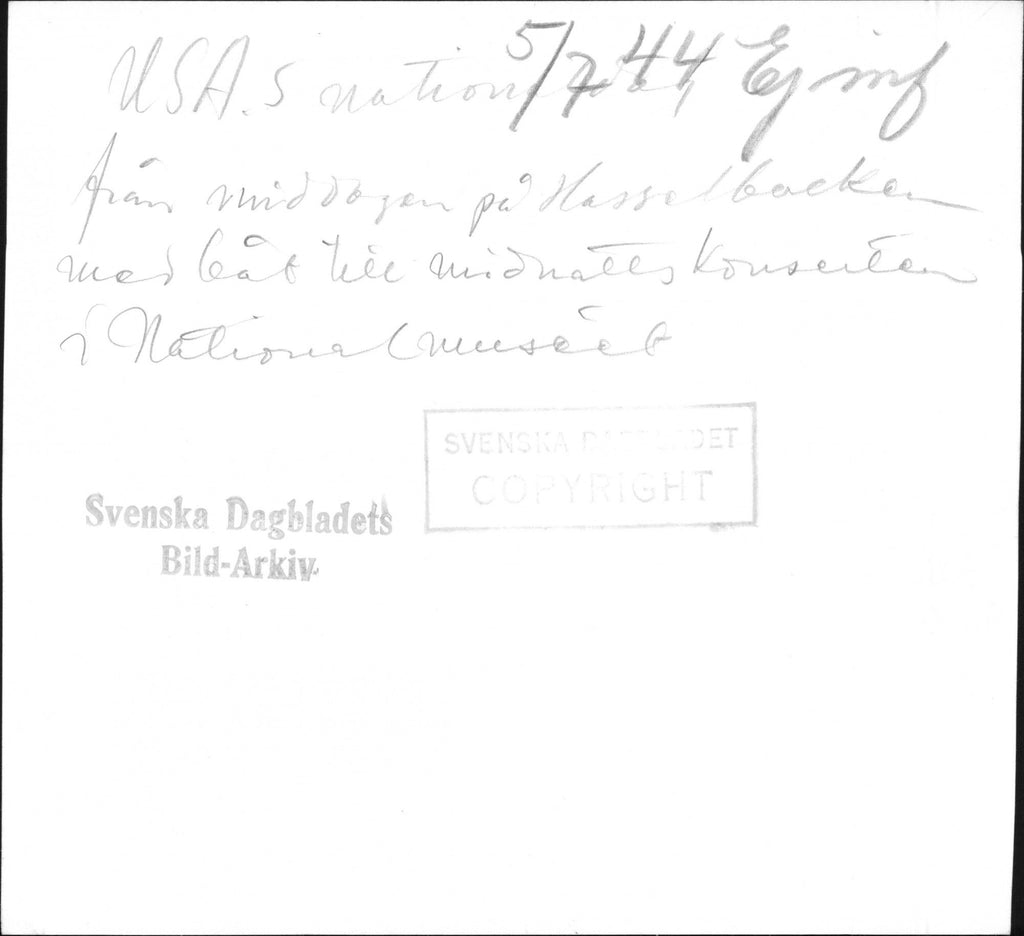 USA.s nationaldag 5/7 44 Ej inf
från middagen på Hasselbacken
med båt till midnattskonserten
i Nationalmuseet
SVENSKA DAGBLADET
COPYRIGHT
Svenska Dagbladets
Bild-Arkiv.